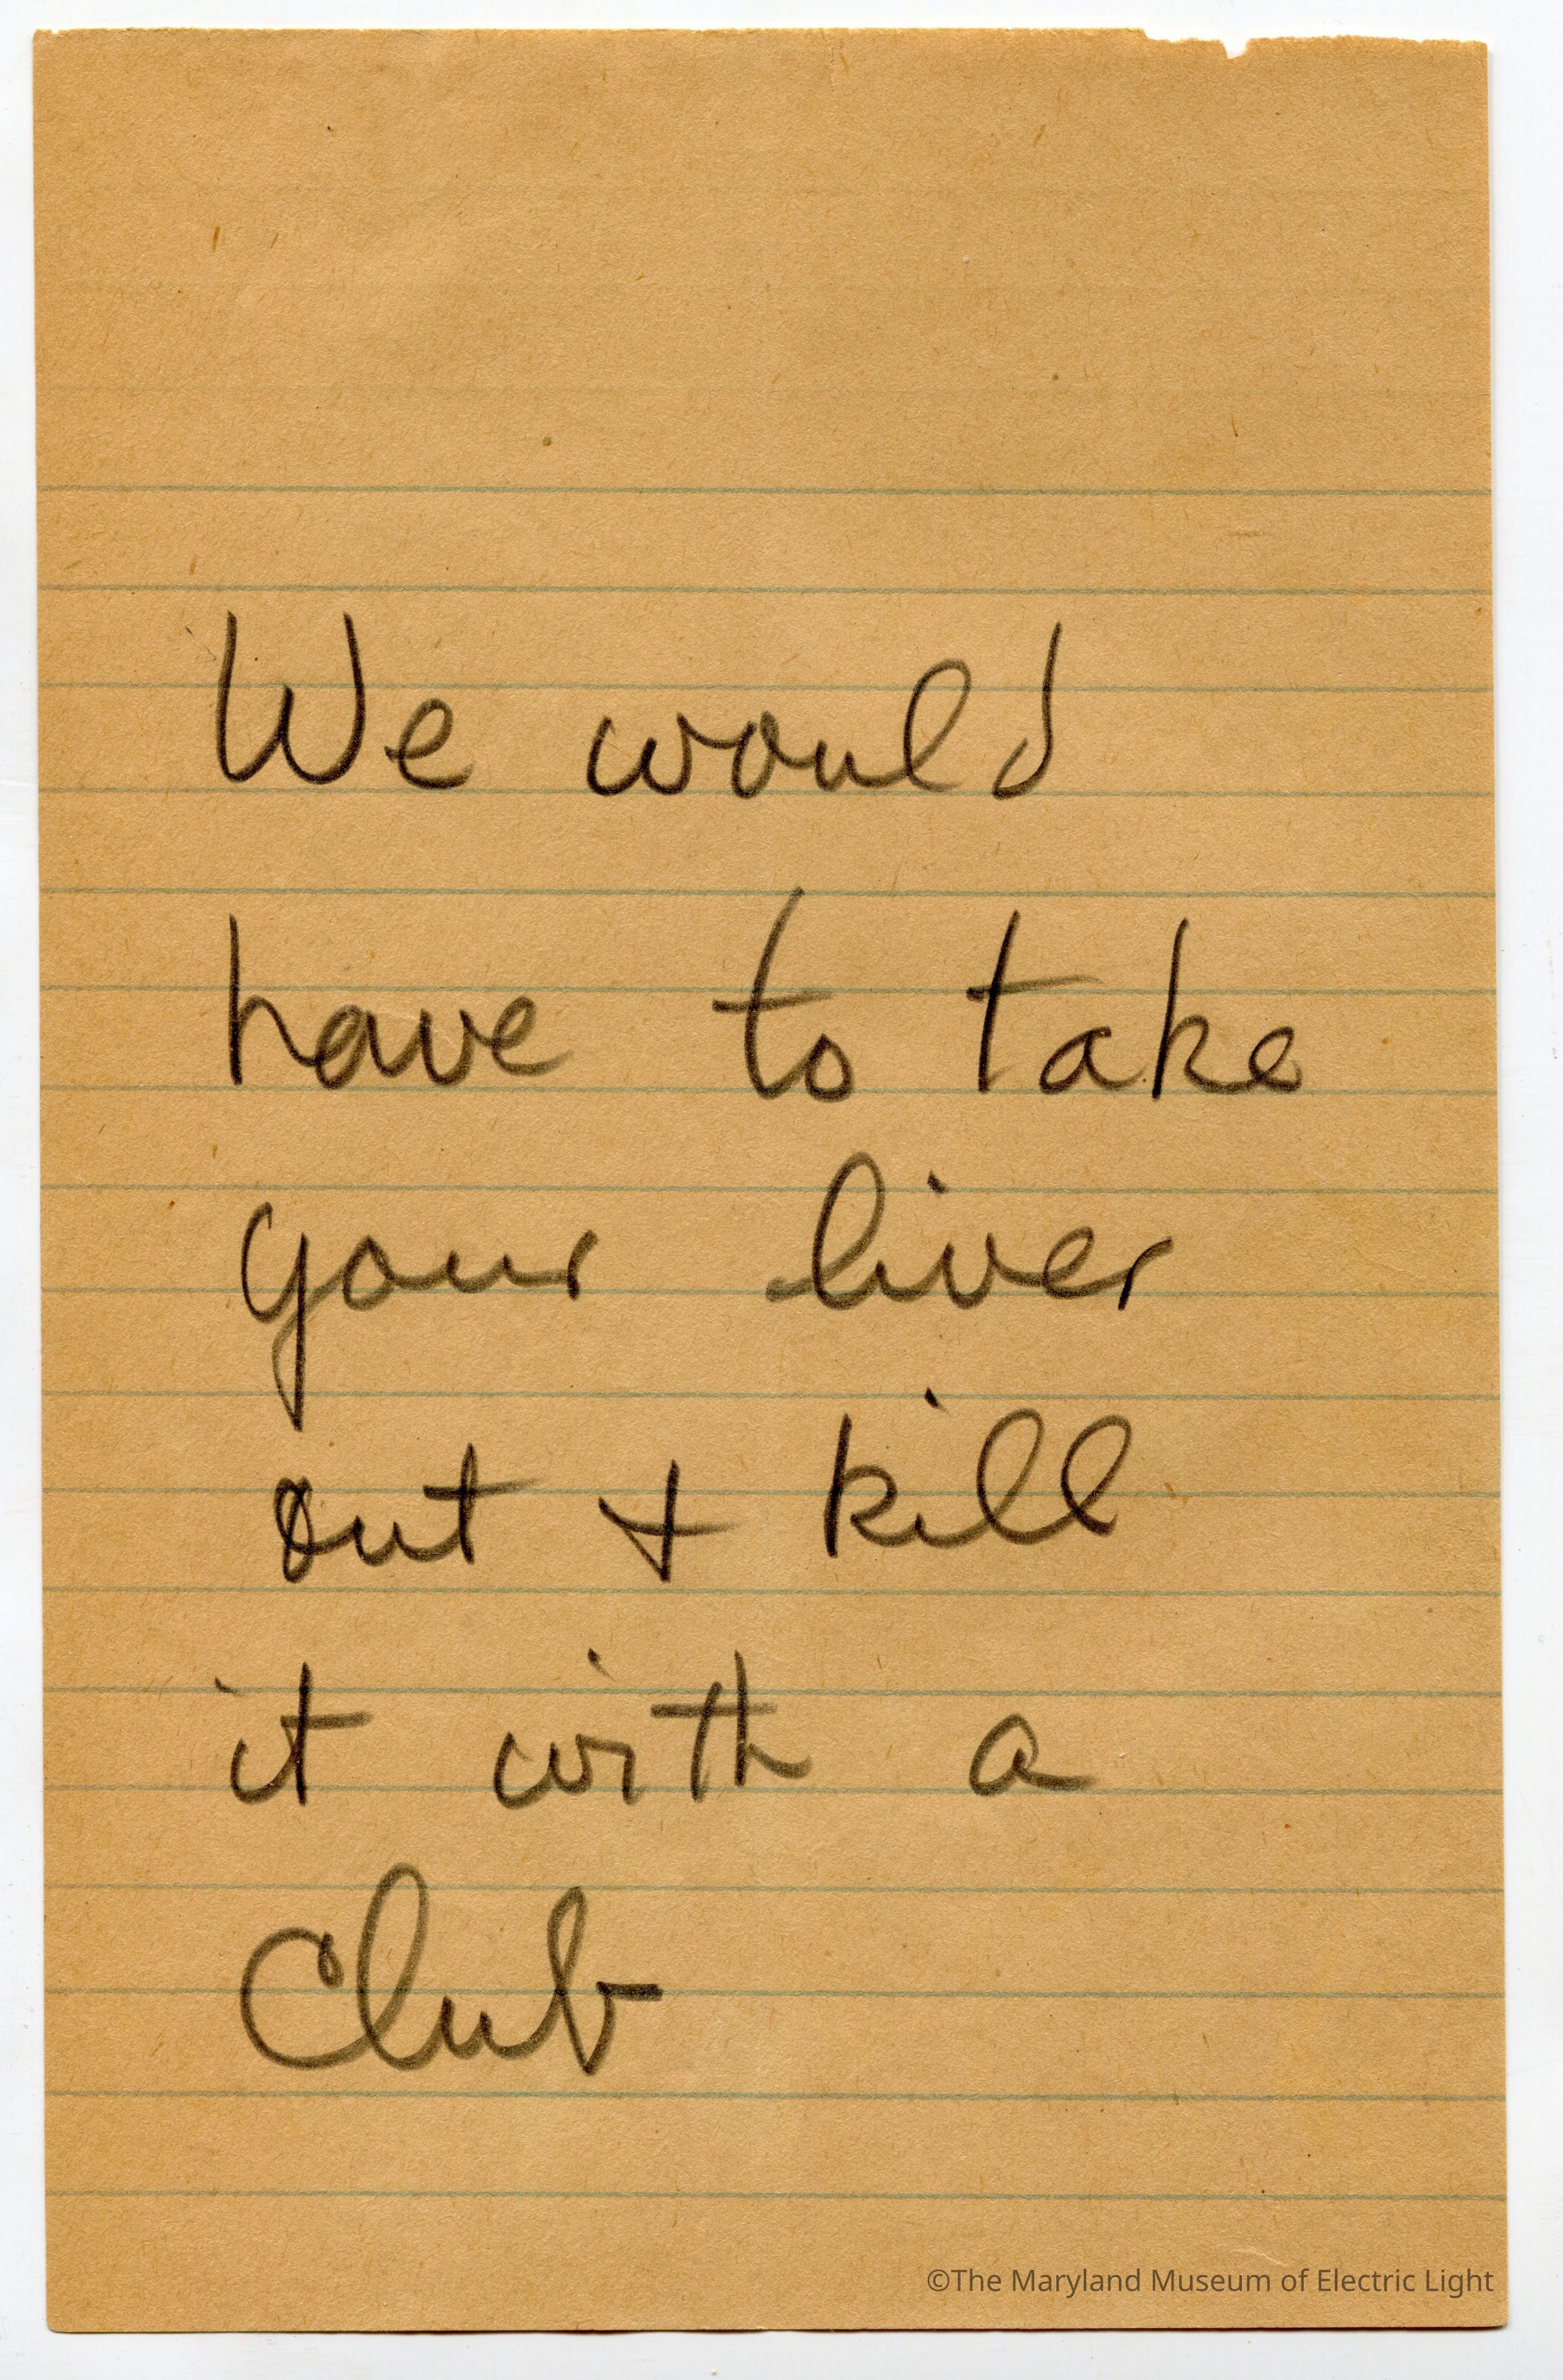 We would
have to take
your liver
out + kill
it with a
Club
©The Maryland Museum of Electric Light